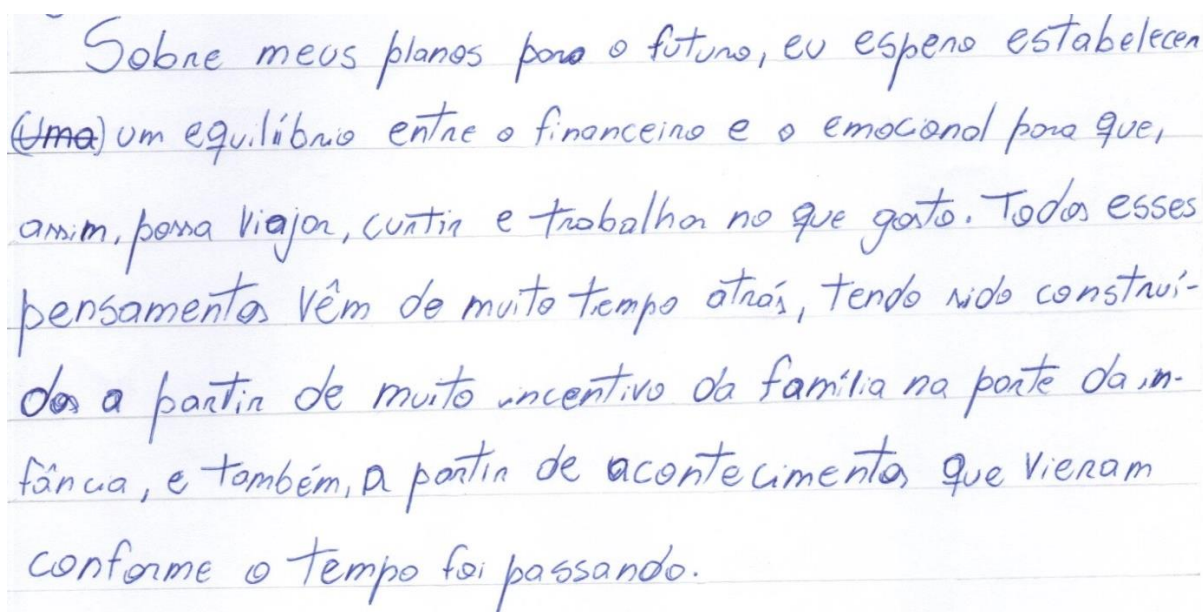 Sobre meus planos para o futuro, eu espero estabelecer
(Uma) um equilíbrio entre o financeiro e o emocional para que,
assim, possa viajar, curtir e trabalhar no que gosto. Todos esses
pensamentos vêm de muito tempo atrás, tendo sido construí-
dos a partir de muito incentivo da família na parte da in-
fância, e também, a partir de acontecimentos que vieram
conforme o tempo foi passando.